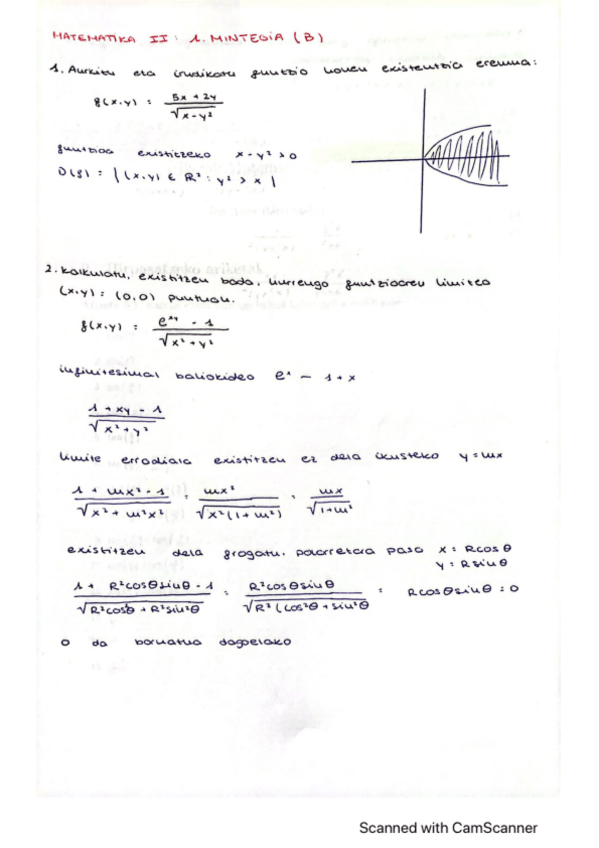 MATEMATIKA II: 1. MINTEGIA (B)
1. Aurkitu eta irudikatu funtzio honen existentzia eremua:
f(x,y) = (5x + 2y) / √(x - y²)
funtzioa existitzeko x - y² > 0
D(f) = { (x,y) ∈ R² : y² > x }
2. Kalkulatu, existitzen bada, hurrengo funtzioaren limitea
(x,y) = (0,0) puntuan.
f(x,y) = (e^xy - 1) / √(x² + y²)
infinitesimal baliokidea e^x - 1 + x
(1 + xy - 1) / √(x² + y²)
limite erradiala existitzen ez dela ikusteko y = mx
(1 + mx² - 1) / √(x² + m²x²) = mx² / √(x²(1 + m²)) = mx / √(1 + m²)
existitzen dela frogatu, polarretara pasa x = R cos θ
y = R sin θ
(1 + R² cos θ sin θ - 1) / √(R² cos²θ + R² sin²θ) = R² cos θ sin θ / √(R² (cos²θ + sin²θ = R cos θ sin θ = 0
0 da bornatua dagoelako
Scanned with CamScanner